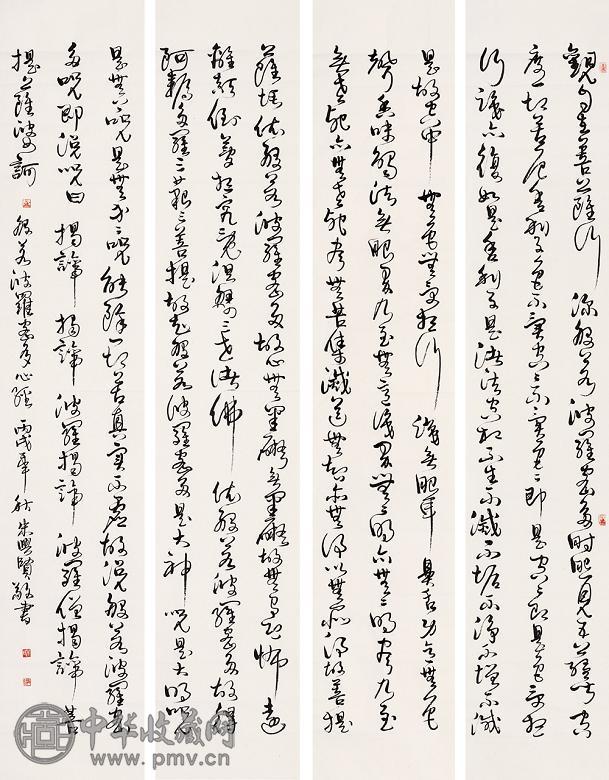 觀自在菩薩行深般若波羅蜜多時照見五蘊皆空
度一切苦厄舍利子色不異空空不異色色即是空空即是色受想
行識亦復如是舍利子是諸法空相不生不滅不垢不淨不增不減
是故空中無色無受想行識無眼耳鼻舌身意無色
聲香味觸法無眼界乃至無意識界無無明亦無無明盡乃至
無老死亦無老死盡無苦集滅道無智亦無得以無所得故菩提
薩埵依般若波羅蜜多故心無罣礙無罣礙故無有恐怖遠
離顛倒夢想究竟涅槃三世諸佛依般若波羅蜜多故得
阿耨多羅三藐三菩提故知般若波羅蜜多是大神咒是大明咒
是無上咒是無等等咒能除一切苦真實不虛故說般若波羅蜜
多咒即說咒曰揭諦揭諦波羅揭諦波羅僧揭諦菩
提薩婆訶般若波羅蜜多心經丙戌年秋朱興賢敬書
中华收藏网
www.pmv.cn